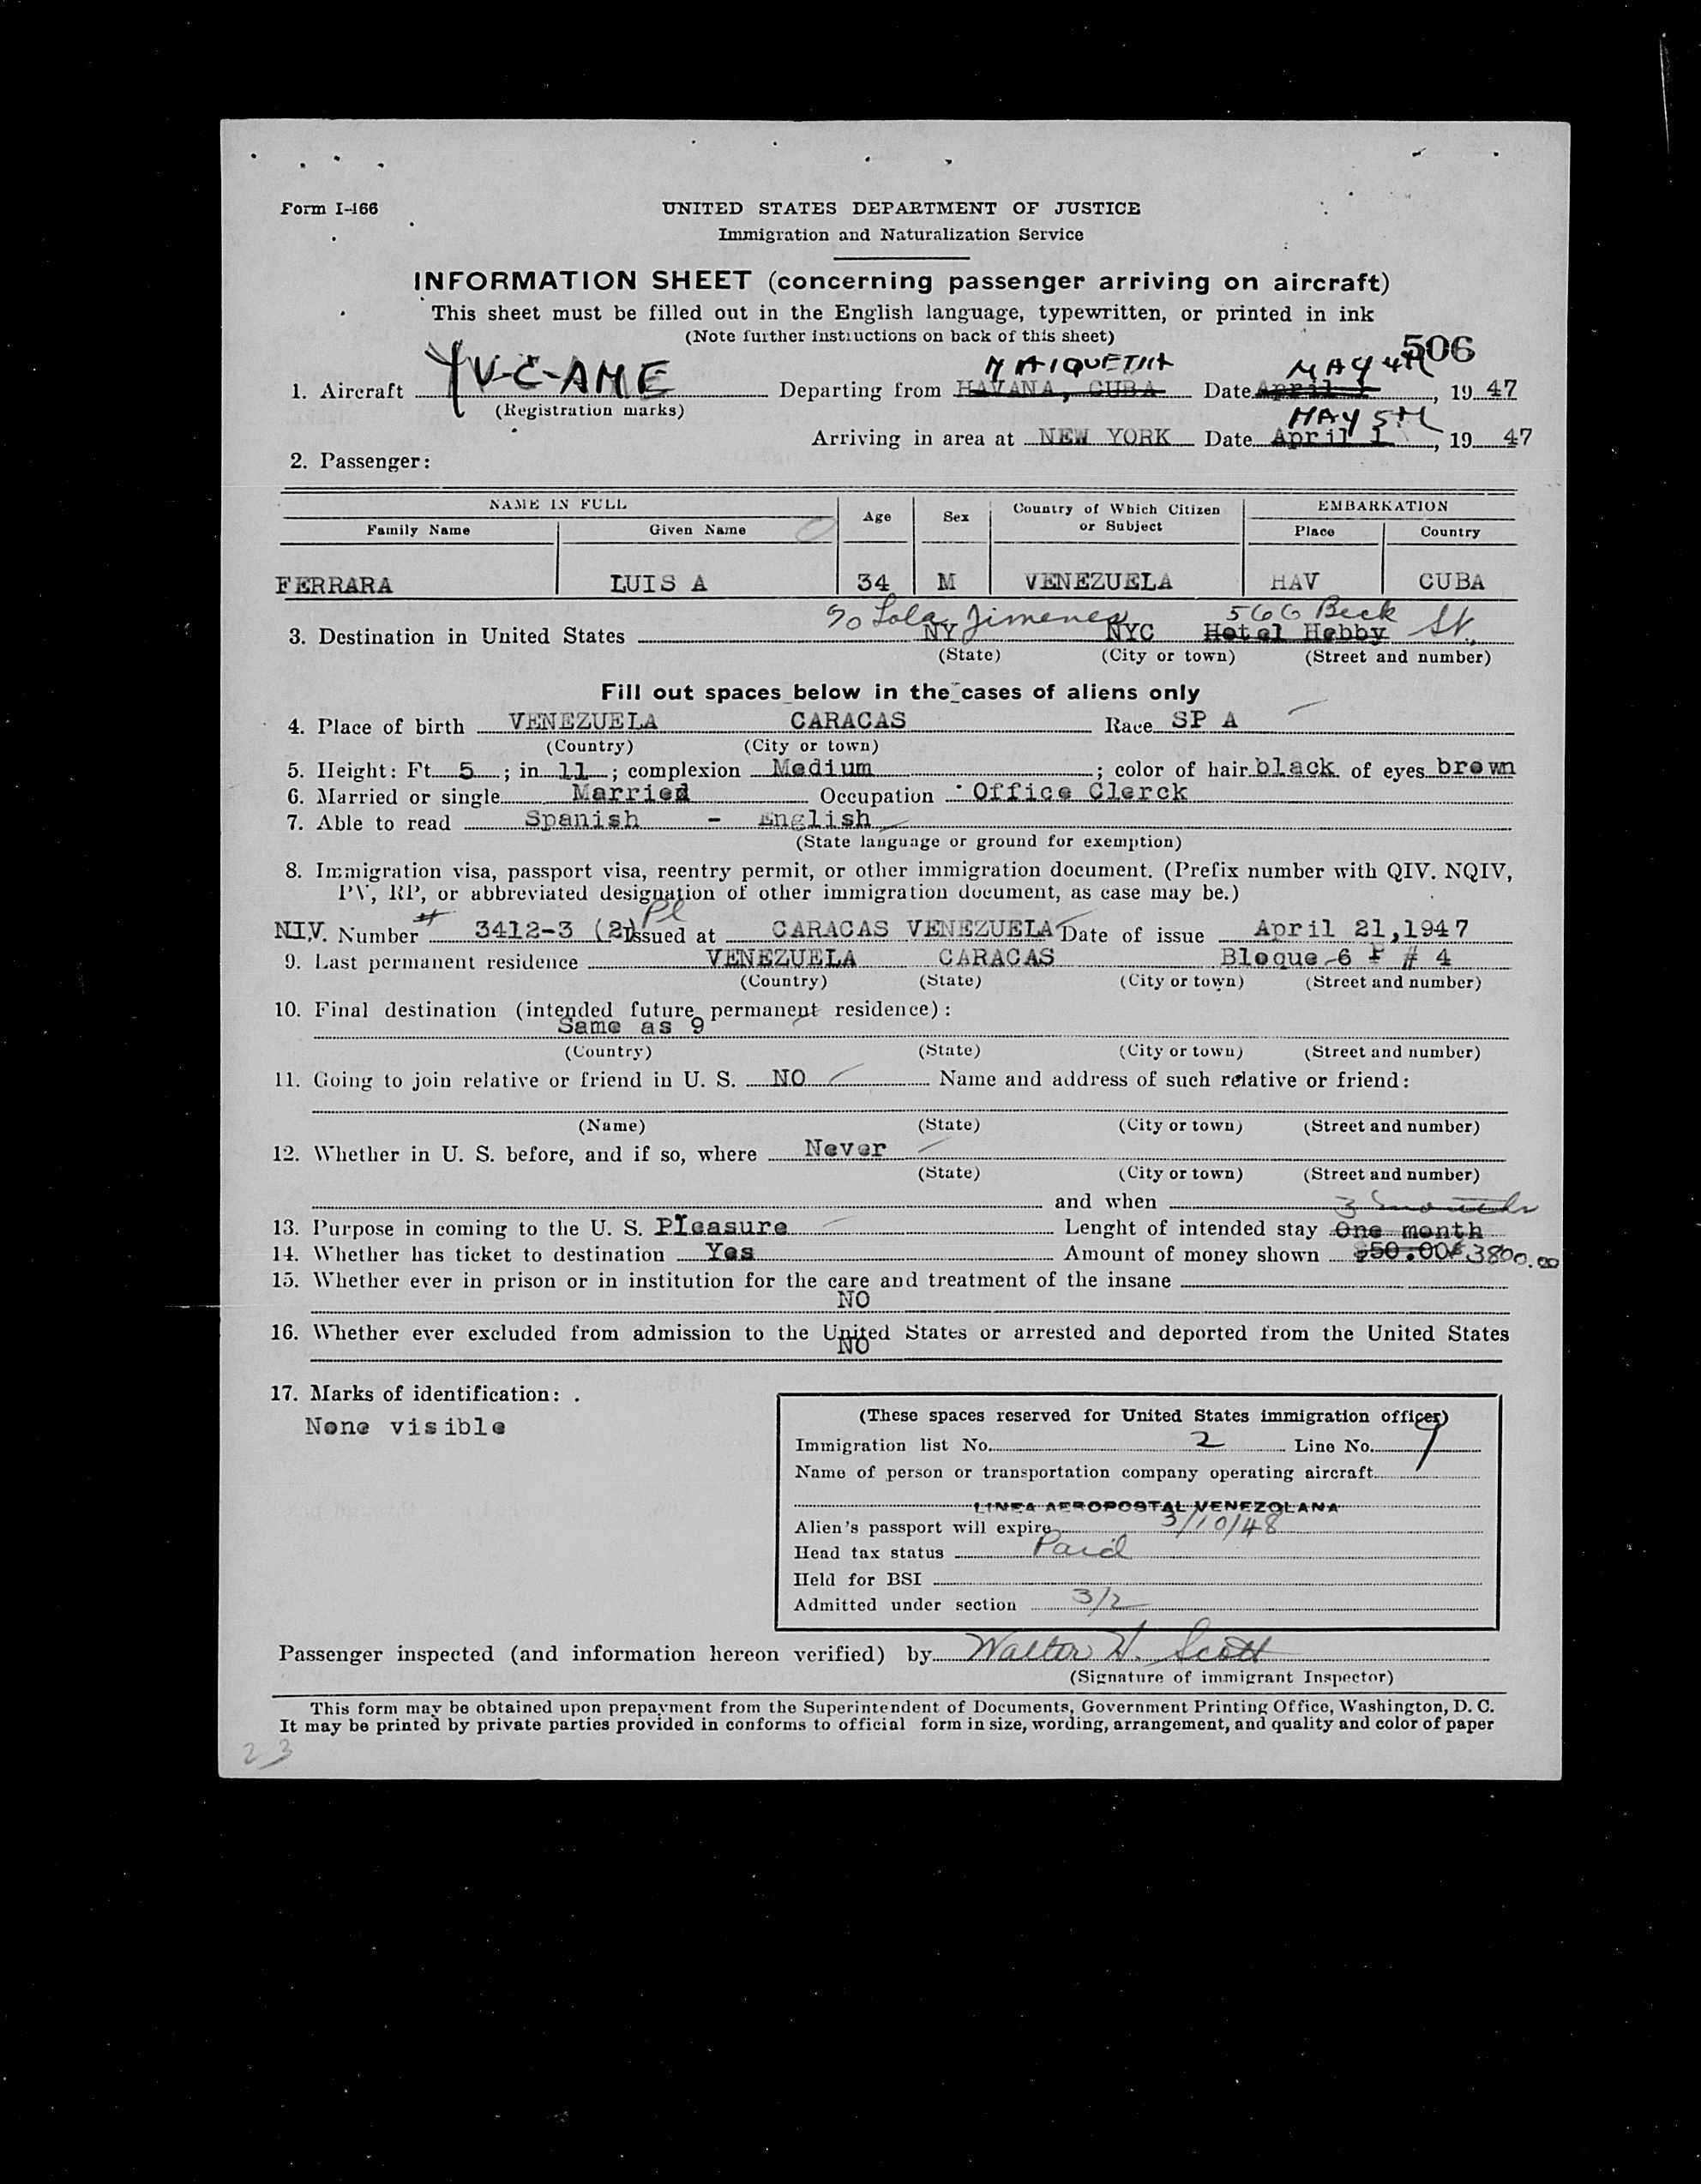 Form I-466
UNITED STATES DEPARTMENT OF JUSTICE
Immigration and Naturalization Service
INFORMATION SHEET (concerning passenger arriving on aircraft)
This sheet must be filled out in the English language, typewritten, or printed in ink
(Note further instructions on back of this sheet)
506
MAIQUETIA MAY 4th
1. Aircraft YV-C-AME Departing from HAVANA, CUBA Date April 1, 19 47
(Registration marks)
MAY 5th
Arriving in area at NEW YORK Date April 1, 19 47
2. Passenger:
NAME IN FULL Age Sex Country of Which Citizen or Subject EMBARKATION
Family Name Given Name Place Country
FERRARA LUIS A 34 M VENEZUELA HAV CUBA
c/o Lola Jimenez 566 Beck St.
3. Destination in United States NY NYC Hotel Hebby
(State) (City or town) (Street and number)
Fill out spaces below in the cases of aliens only
4. Place of birth VENEZUELA CARACAS Race SP A
(Country) (City or town)
5. Height: Ft. 5; in 11; complexion Medium; color of hair black of eyes brown
6. Married or single Married Occupation Office Clerck
7. Able to read Spanish - English
(State language or ground for exemption)
8. Immigration visa, passport visa, reentry permit, or other immigration document. (Prefix number with QIV. NQIV,
PV, RP, or abbreviated designation of other immigration document, as case may be.)
NIV. Number # 3412-3 (2) Issued at CARACAS VENEZUELA Date of issue April 21,1947
9. Last permanent residence VENEZUELA CARACAS Bloque-6 P # 4
(Country) (State) (City or town) (Street and number)
10. Final destination (intended future permanent residence):
Same as 9
(Country) (State) (City or town) (Street and number)
11. Going to join relative or friend in U. S. NO Name and address of such relative or friend:
(Name) (State) (City or town) (Street and number)
12. Whether in U. S. before, and if so, where Never
(State) (City or town) (Street and number)
and when
3 months
13. Purpose in coming to the U. S. Pleasure Lenght of intended stay One month
14. Whether has ticket to destination Yes Amount of money shown $50.00 $3800.00
15. Whether ever in prison or in institution for the care and treatment of the insane
NO
16. Whether ever excluded from admission to the United States or arrested and deported from the United States
NO
17. Marks of identification: .
None visible
(These spaces reserved for United States immigration officer)
Immigration list No. 2 Line No. 9
Name of person or transportation company operating aircraft
LINEA AEROPOSTAL VENEZOLANA
Alien's passport will expire 3/10/48
Head tax status Paid
Held for BSI
Admitted under section 3/2
Passenger inspected (and information hereon verified) by Walter H. Scott
(Signature of immigrant Inspector)
This form may be obtained upon prepayment from the Superintendent of Documents, Government Printing Office, Washington, D. C.
It may be printed by private parties provided in conforms to official form in size, wording, arrangement, and quality and color of paper
23